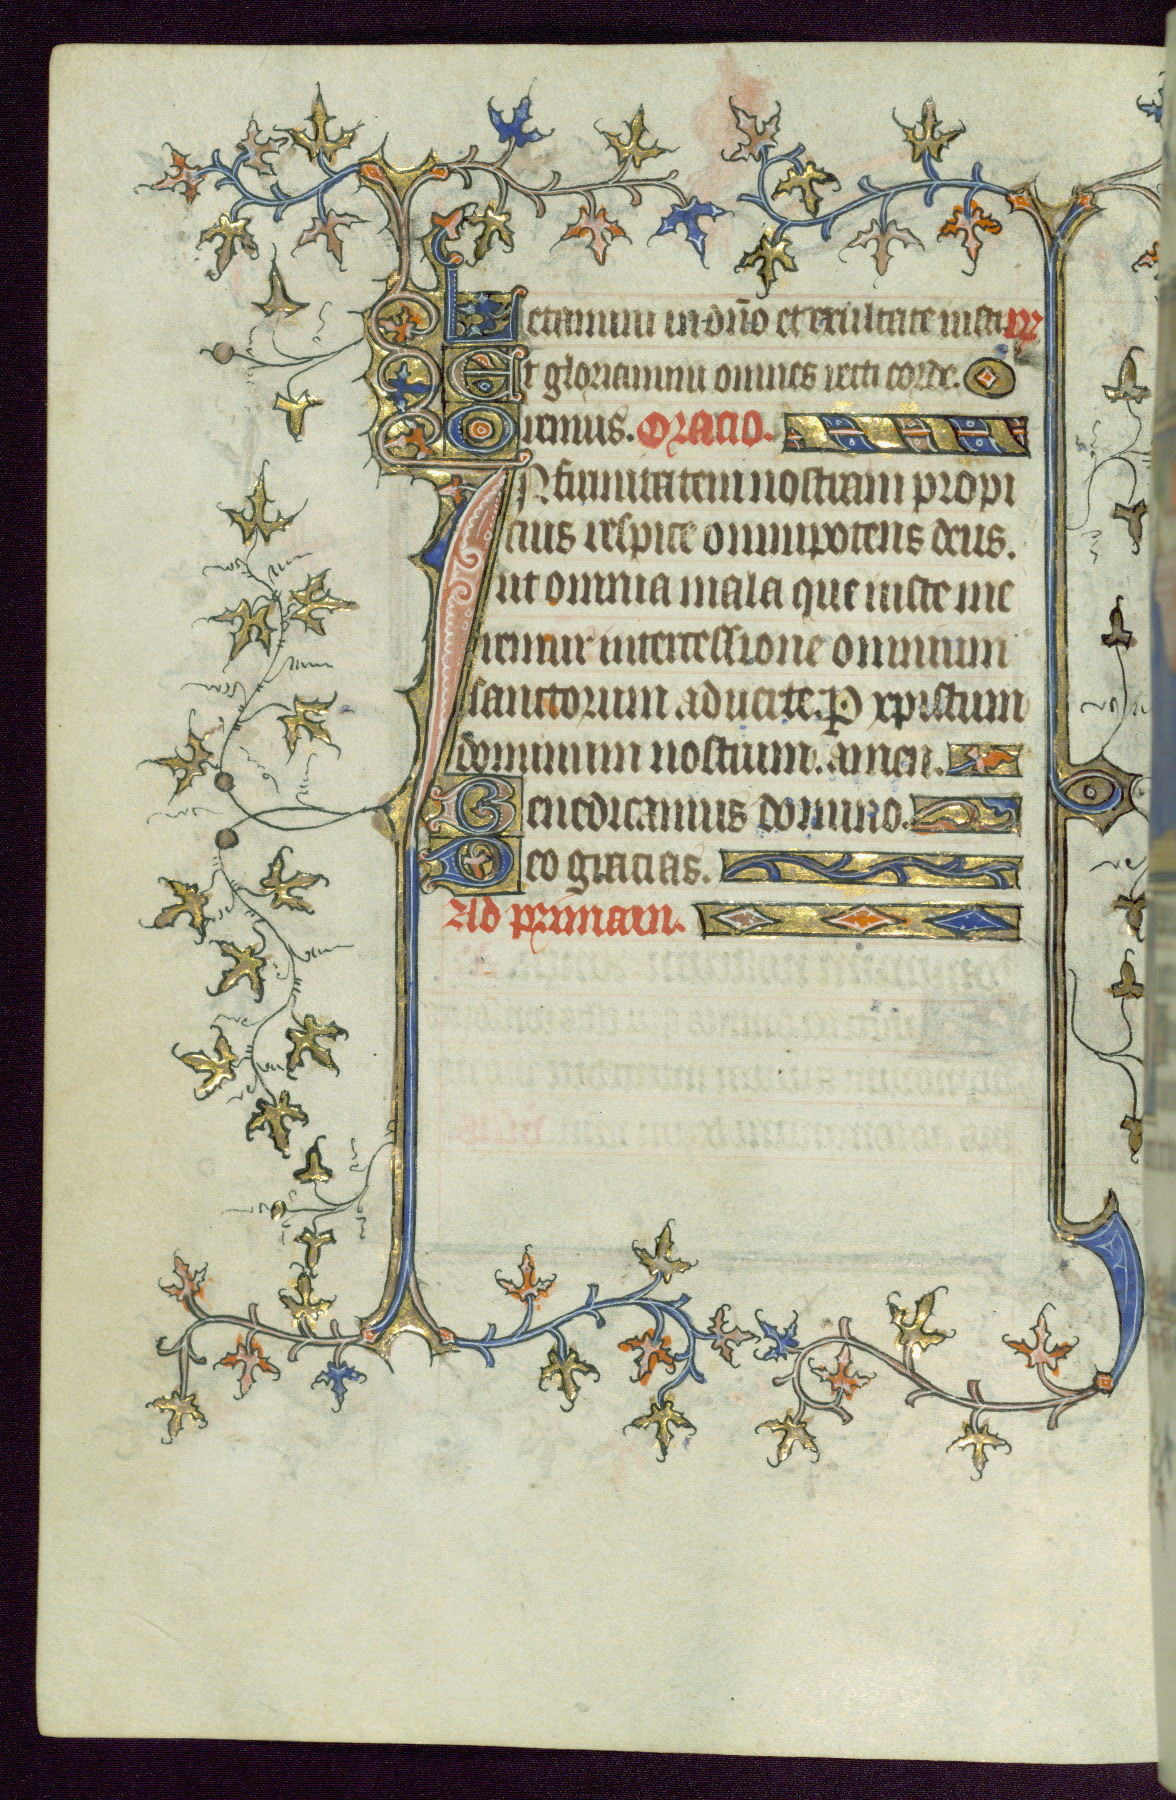 Letamini in dño et exultate iusti
Et gloriamini omnes recti corde.
Oremus. Oracio.
Infirmitatem nostram propi
cius respice omnipotens deus.
ut omnia mala que iuste me
remur intercessione omnium
sanctorum aducite. P xpistum
dominum nostrum. amen.
Benedicamus domino.
Deo gracias.
Ad primam.